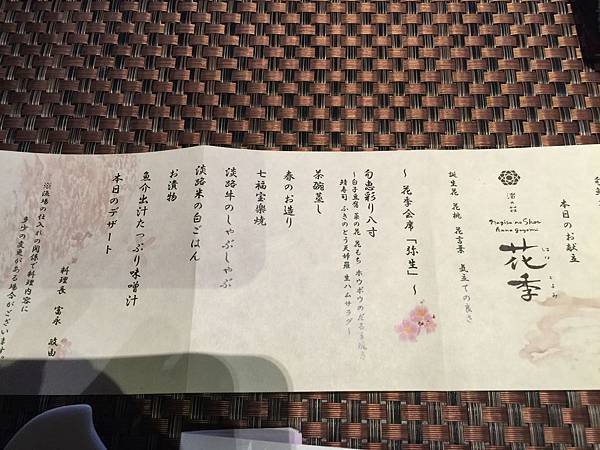 本日のお献立
渚の荘
Nagisa no Shou
Hanagoyomi
花季
はな ごよみ
誕生花 花桃 花言葉 気立ての良さ
～ 花季会席「弥生」～
旬恵彩り八寸
～白子豆腐 菜の花 花もち ホウボウの
蛙寿司 ふきのとう天婦羅 生ハムサラダ～
茶碗蒸し
春のお造り
七福宝楽焼
淡路牛のしゃぶしゃぶ
淡路米の白ごはん
お漬物
魚介出汁たっぷり味噌汁
本日のデザート
料理長 富永 岐由
※漁場の仕入れの関係で料理内容に
多少の変更がある場合がございます。